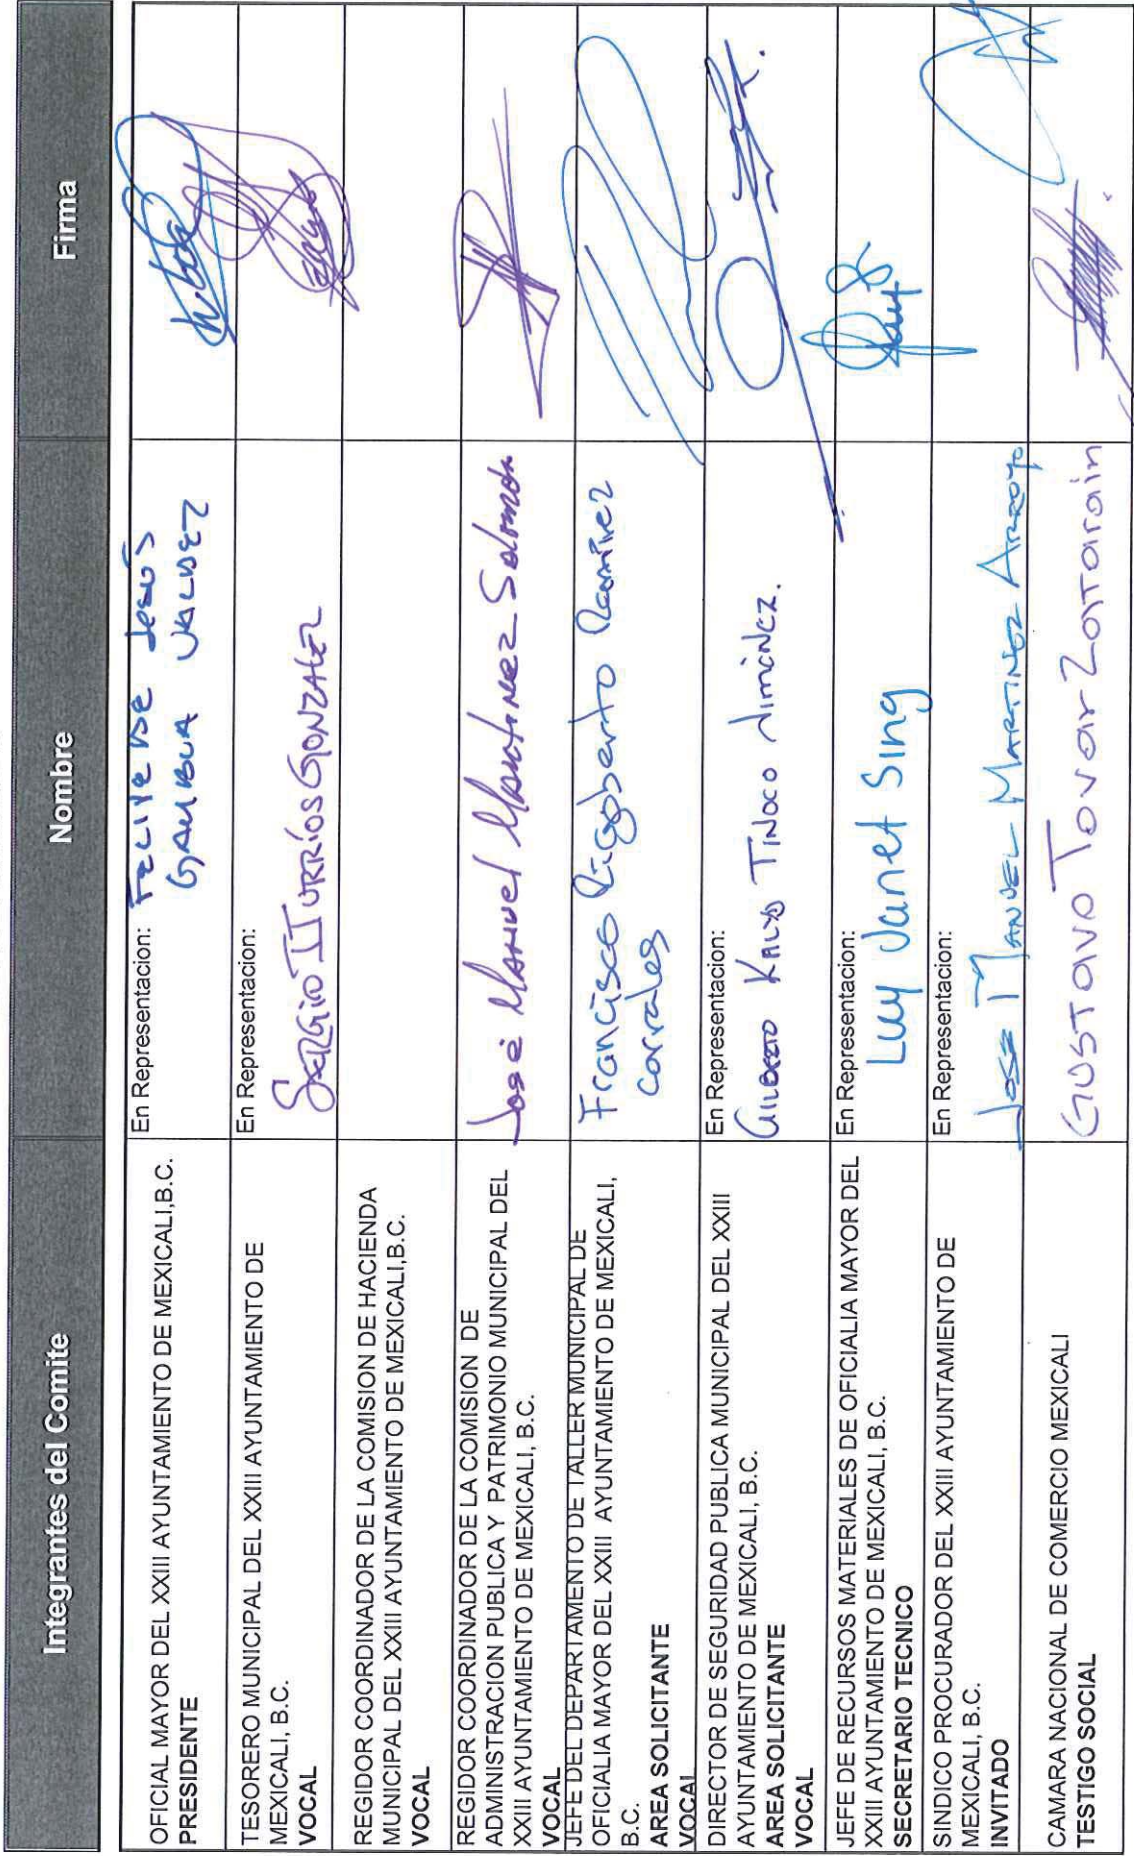 Integrantes del Comite
Nombre
Firma
OFICIAL MAYOR DEL XXIII AYUNTAMIENTO DE MEXICALI,B.C.
PRESIDENTE
En Representacion: FELIPE DE JESUS
GAMBOA VALDEZ
TESORERO MUNICIPAL DEL XXIII AYUNTAMIENTO DE
MEXICALI, B.C.
VOCAL
En Representacion:
SERGIO ITURRÍOS GONZALEZ
REGIDOR COORDINADOR DE LA COMISION DE HACIENDA
MUNICIPAL DEL XXIII AYUNTAMIENTO DE MEXICALI,B.C.
VOCAL
REGIDOR COORDINADOR DE LA COMISION DE
ADMINISTRACION PUBLICA Y PATRIMONIO MUNICIPAL DEL
XXIII AYUNTAMIENTO DE MEXICALI, B.C.
VOCAL
José Manuel Martinez Salomón
JEFE DEL DEPARTAMENTO DE TALLER MUNICIPAL DE
OFICIALIA MAYOR DEL XXIII AYUNTAMIENTO DE MEXICALI,
B.C.
AREA SOLICITANTE
VOCAL
Francisco Rigoberto Ramirez
Corrales
DIRECTOR DE SEGURIDAD PUBLICA MUNICIPAL DEL XXIII
AYUNTAMIENTO DE MEXICALI, B.C.
AREA SOLICITANTE
VOCAL
En Representacion:
GILBERTO KALID TINOCO JIMÉNEZ.
JEFE DE RECURSOS MATERIALES DE OFICIALIA MAYOR DEL
XXIII AYUNTAMIENTO DE MEXICALI, B.C.
SECRETARIO TECNICO
En Representacion:
Luy Janet Sing
SINDICO PROCURADOR DEL XXIII AYUNTAMIENTO DE
MEXICALI, B.C.
INVITADO
En Representacion:
JOSE MANUEL MARTINEZ ARROYO
CAMARA NACIONAL DE COMERCIO MEXICALI
TESTIGO SOCIAL
GUSTAVO Tovar Zatarain